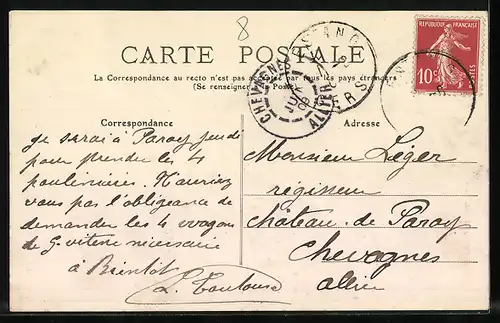 8
CARTE POSTALE
La Correspondance au recto n'est pas acceptée par tous les pays étrangers
(Se renseigner à la Poste)
CHEVAGNES
ALLIER
10c
Correspondance
Adresse
Je serai à Paray jeudi
pour prendre les 4
poulinières. N'auriez
vous pas l'obligeance de
demander les 4 wagons
de G. vitesse nécessaire
à Bientôt
L. Toulouse
Monsieur Léger
régisseur
château de Paray
Chevagnes
Allier